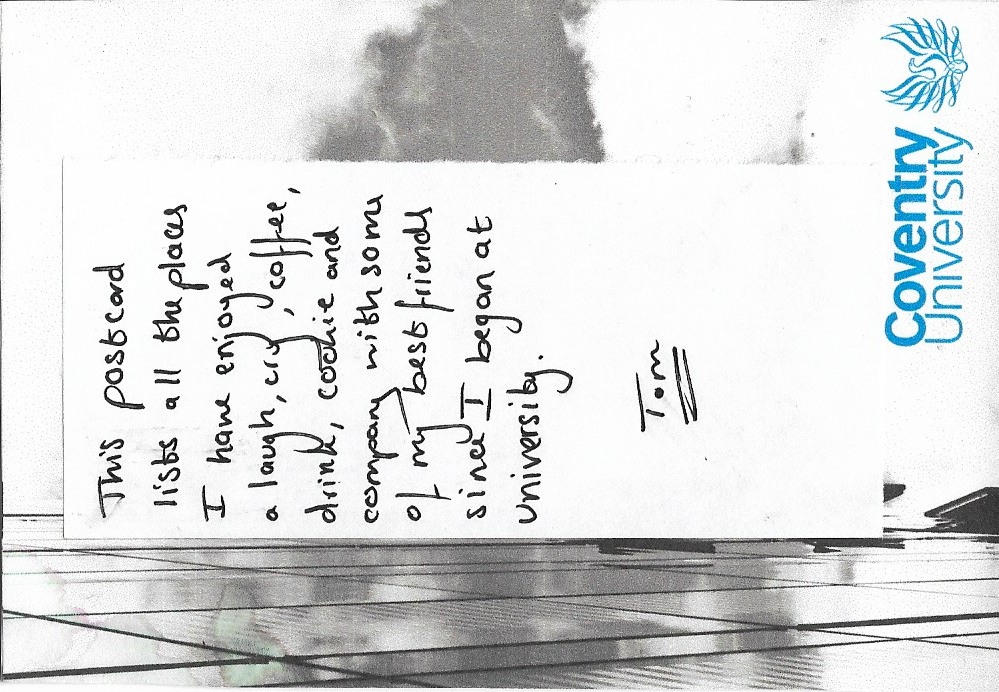 This postcard
lists all the places
I have enjoyed
a laugh, cry, coffee,
drink, cookie and
company with some
of my best friends
since I began at
university.
Tom
Coventry
University